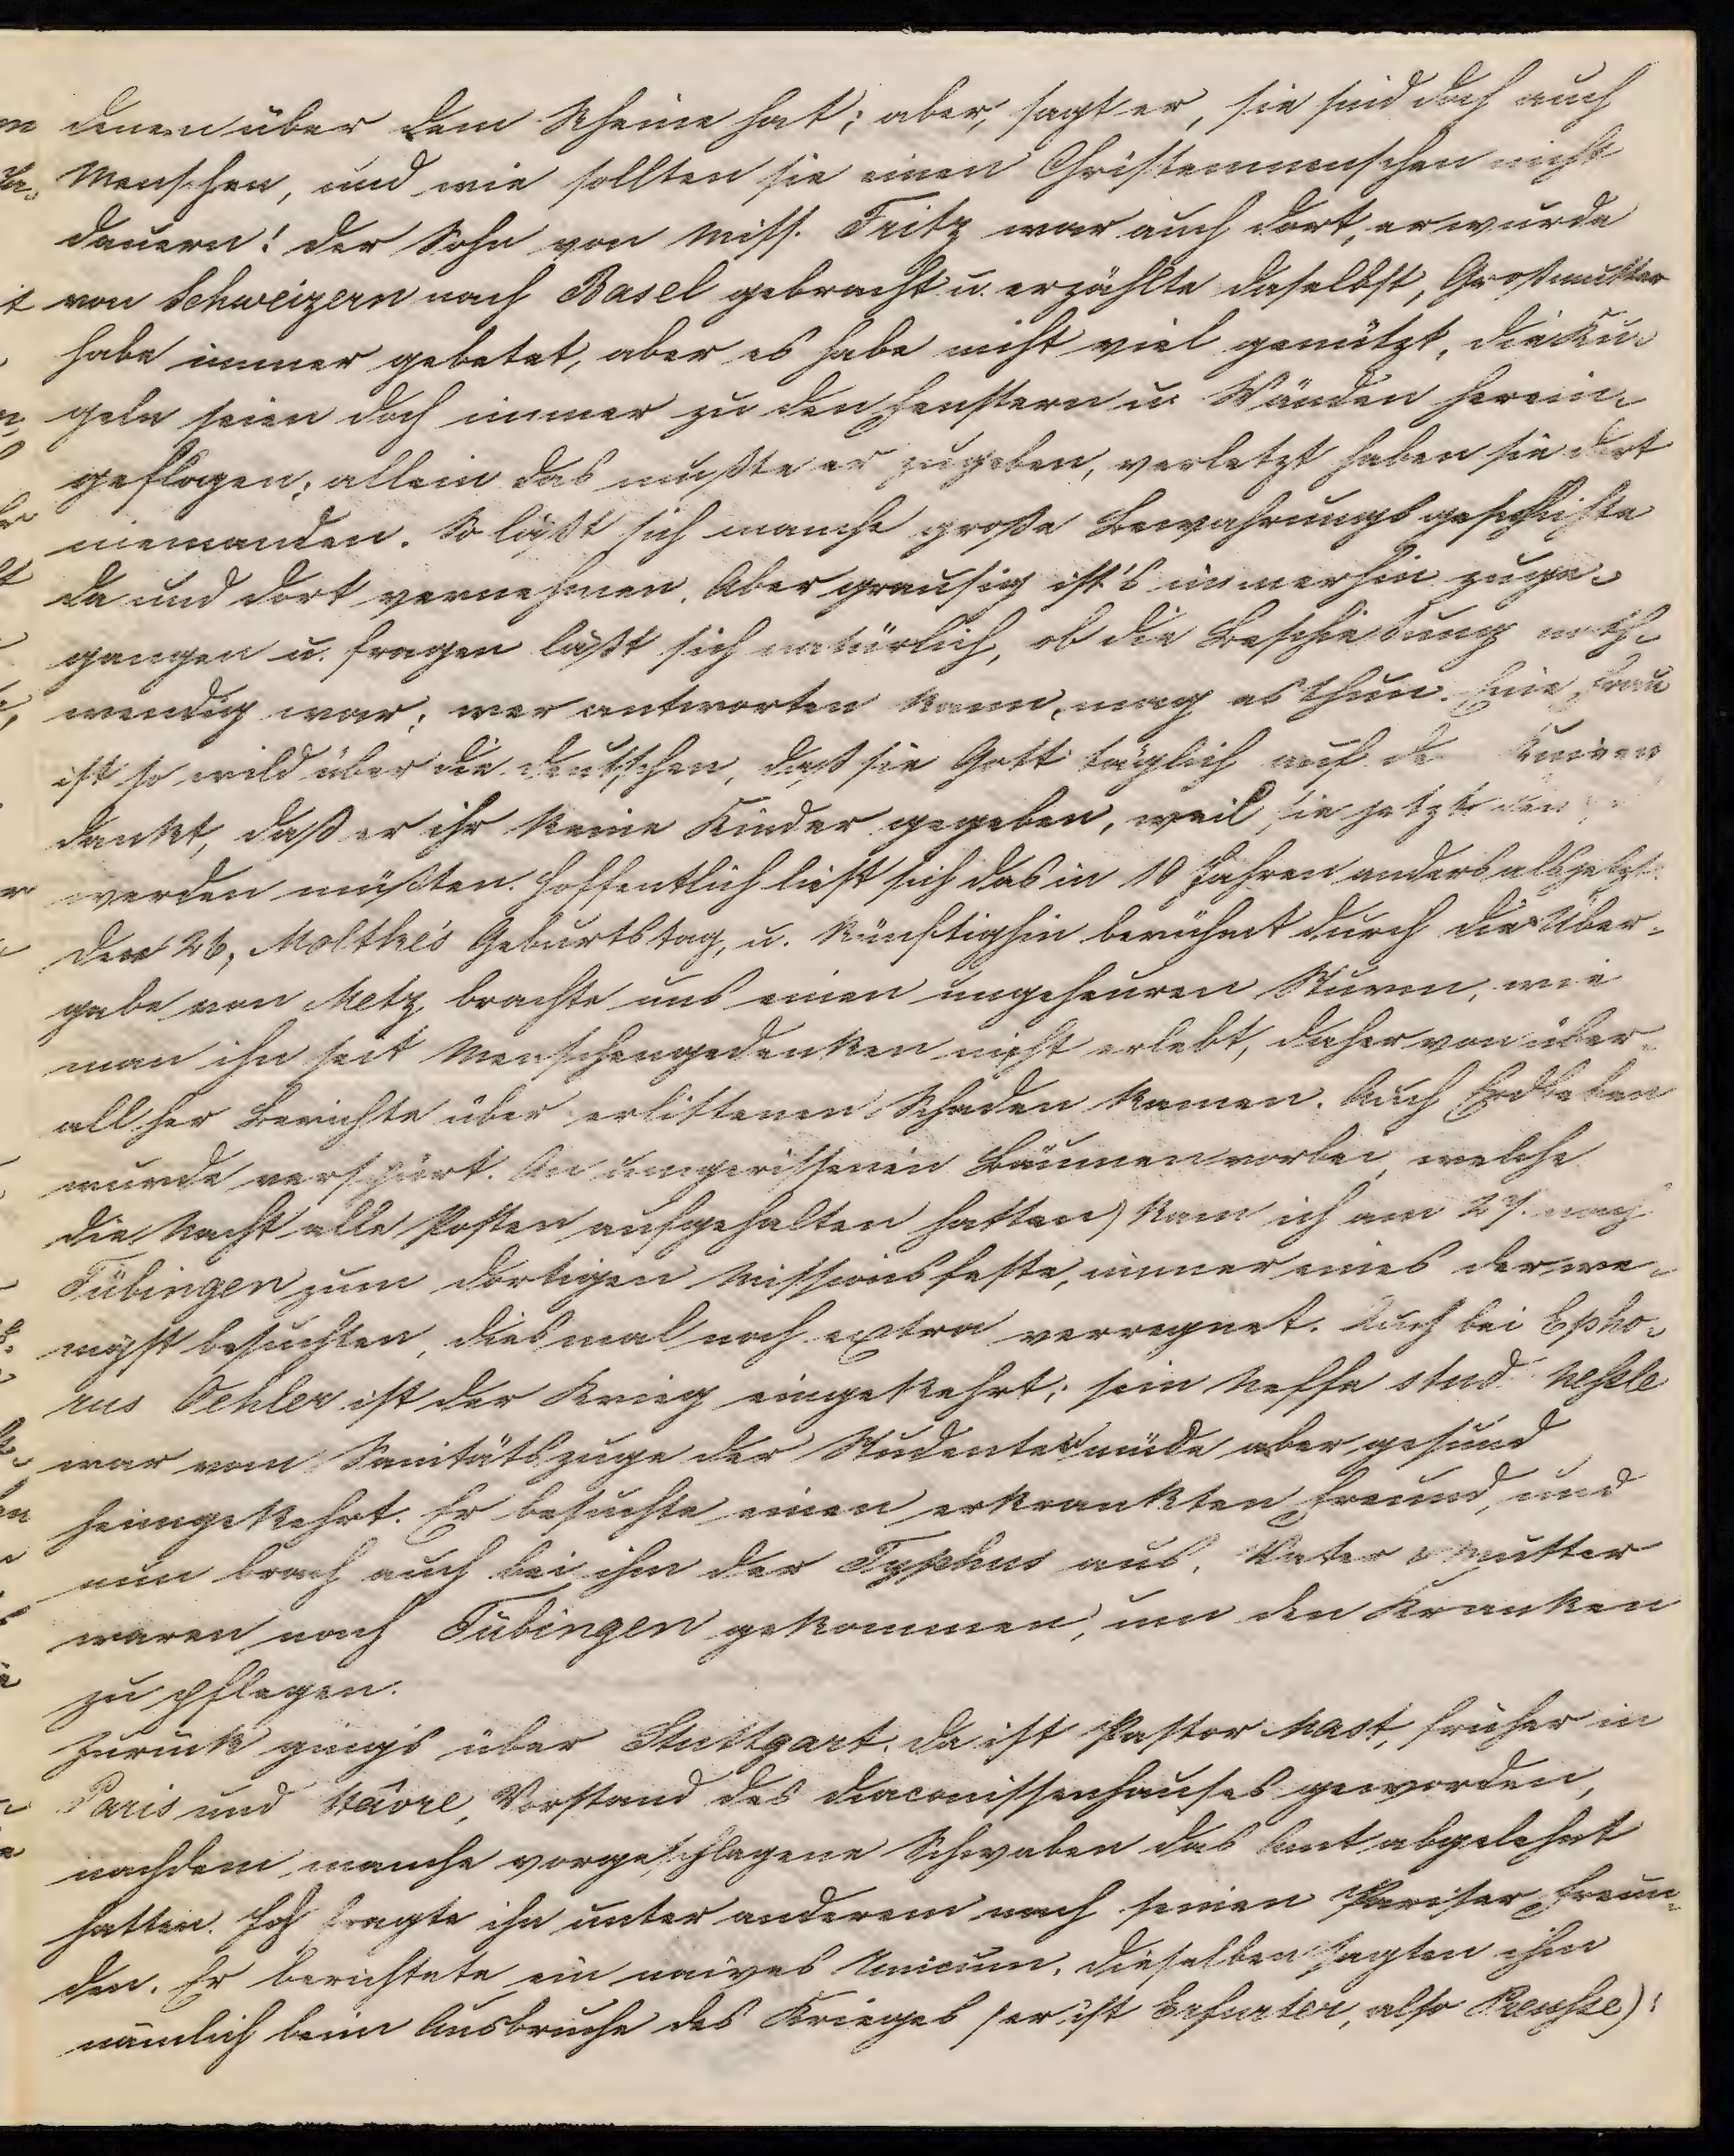 denen über dem Rheine hat; aber, sagt er, sie sind doch auch
Menschen, und wie sollten sie einen Christenmenschen nicht
dauern! Der Sohn von Miss. Fritz war auch dort, er wurde
von Schweizern nach Basel gebracht u. erzählte daselbst, Großmutter
habe immer gebetet, aber es habe nicht viel genützt, die Ku-
geln seien doch immer zu den Fenstern u. Wänden herein-
geflogen; allein das mußte er zugeben, verletzt haben sie dort
niemanden. So läßt sich manche große Bewahrungsgeschichte
da und dort vernehmen. Aber grausig ist's immerhin zuge-
gangen u. fragen läßt sich natürlich, ob die Beschießung noth-
wendig war; wer antworten kann, mag es thun. Eine Frau
ist so wild über die Deutschen, daß sie Gott täglich auf Knieen
dankt, daß er ihr keine Kinder gegeben, weil sie jetzt
werden müßten. Hoffentlich liest sich das in 10 Jahren anders als jetzt.
Der 26, Moltke's Geburtstag, u. künftighin berühmt durch die Über-
gabe von Metz brachte uns einen ungeheuren Sturm, wie
man ihn seit Menschengedenken nicht erlebt, daher von über-
all her Berichte über erlittenen Schaden kamen. Auch Erdbeben
wurde verspürt. An umgerissenen Bäumen vorbei welche
die Nacht alle Posten aufgehalten hatten) kam ich am 27. nach
Tübingen zum dortigen Missionsfeste, immer eines der we-
nigst besuchten, diesmal noch extra verregnet. Auch bei Epho-
rus Oehler ist der Krieg eingekehrt; sein Neffe stud. Neßle
war vom Sanitätszuge der Studenten müde aber gesund
heimgekehrt. Er besuchte einen erkrankten Freund, und
nun brach auch bei ihm der Typhus aus. Vater & Mutter
waren nach Tübingen gekommen, um den Kranken
zu pflegen.
Zurück ging's über Stuttgart. Da ist Pastor Mast, früher in
Paris und Hâvre, Vorstand des Diaconissenhauses geworden,
nachdem manche vorgeschlagene Schwaben das Amt abgelehnt
hatten. Ich fragte ihn unter anderem nach seinen Pariser Freun-
den. Er berichtete ein naives Unicum. Dieselben sagten ihm
nämlich beim Ausbruche des Krieges (er ist Erfurter, also Preuße):